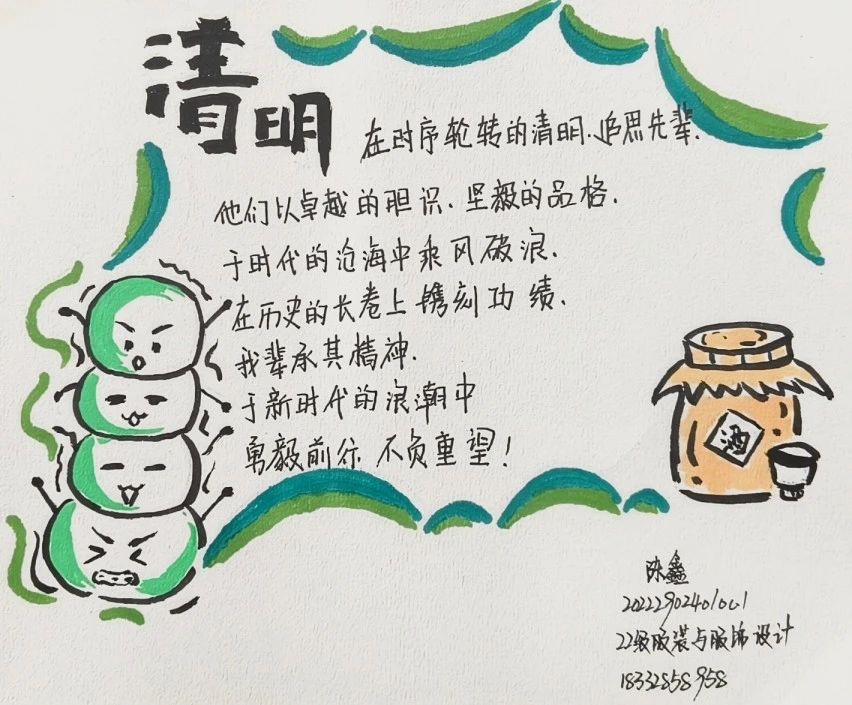 清明
在时序轮转的清明、追思先辈.
他们以卓越的胆识、坚毅的品格.
于时代的沧海中乘风破浪.
在历史的长卷上镌刻功绩.
我辈承其精神.
于新时代的浪潮中
勇毅前行 不负重望!
酒
鑫
20222902401001
22级服装与服饰设计
18332858958